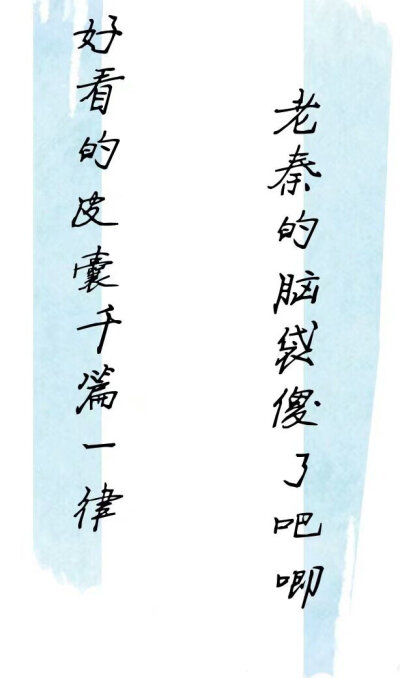 好看的皮囊千篇一律
老秦的脑袋傻了吧唧